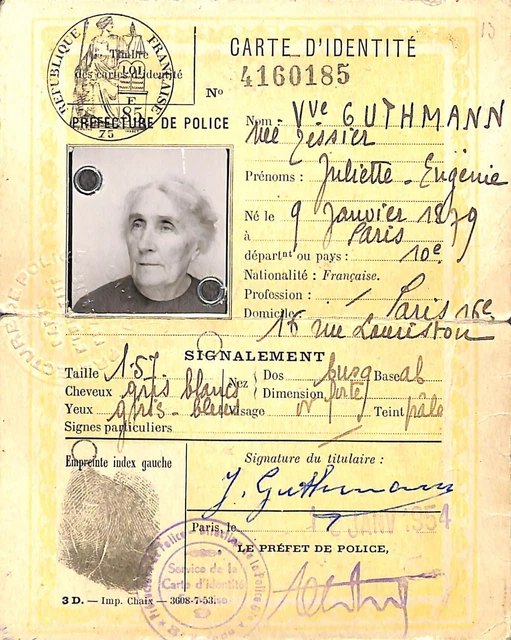 13
RÉPUBLIQUE FRANÇAISE
Timbre
des cartes d'identité
LOI
F
85
75
CARTE D'IDENTITÉ
Nº 4160185
PRÉFECTURE DE POLICE
Nom : Vve GUTHMANN
née Tessier
Prénoms : Juliette - Eugénie
Né le 9 Janvier 1879
à Paris
départnt ou pays : 10e
Nationalité : Française.
Profession : /
Domicile Paris 16e
16 rue Lauriston
SIGNALEMENT
Taille 1.57 Nez Dos busq Base ab
Cheveux gris blancs Dimension forte
Yeux gris-bleus Visage ov Teint pâle
Signes particuliers
Empreinte index gauche
Signature du titulaire :
J. Guthmann
Paris, le JANV 1954
LE PRÉFET DE POLICE,
Service de la
Carte d'Identité
3 D. — Imp. Chaix — 3608-7-53.